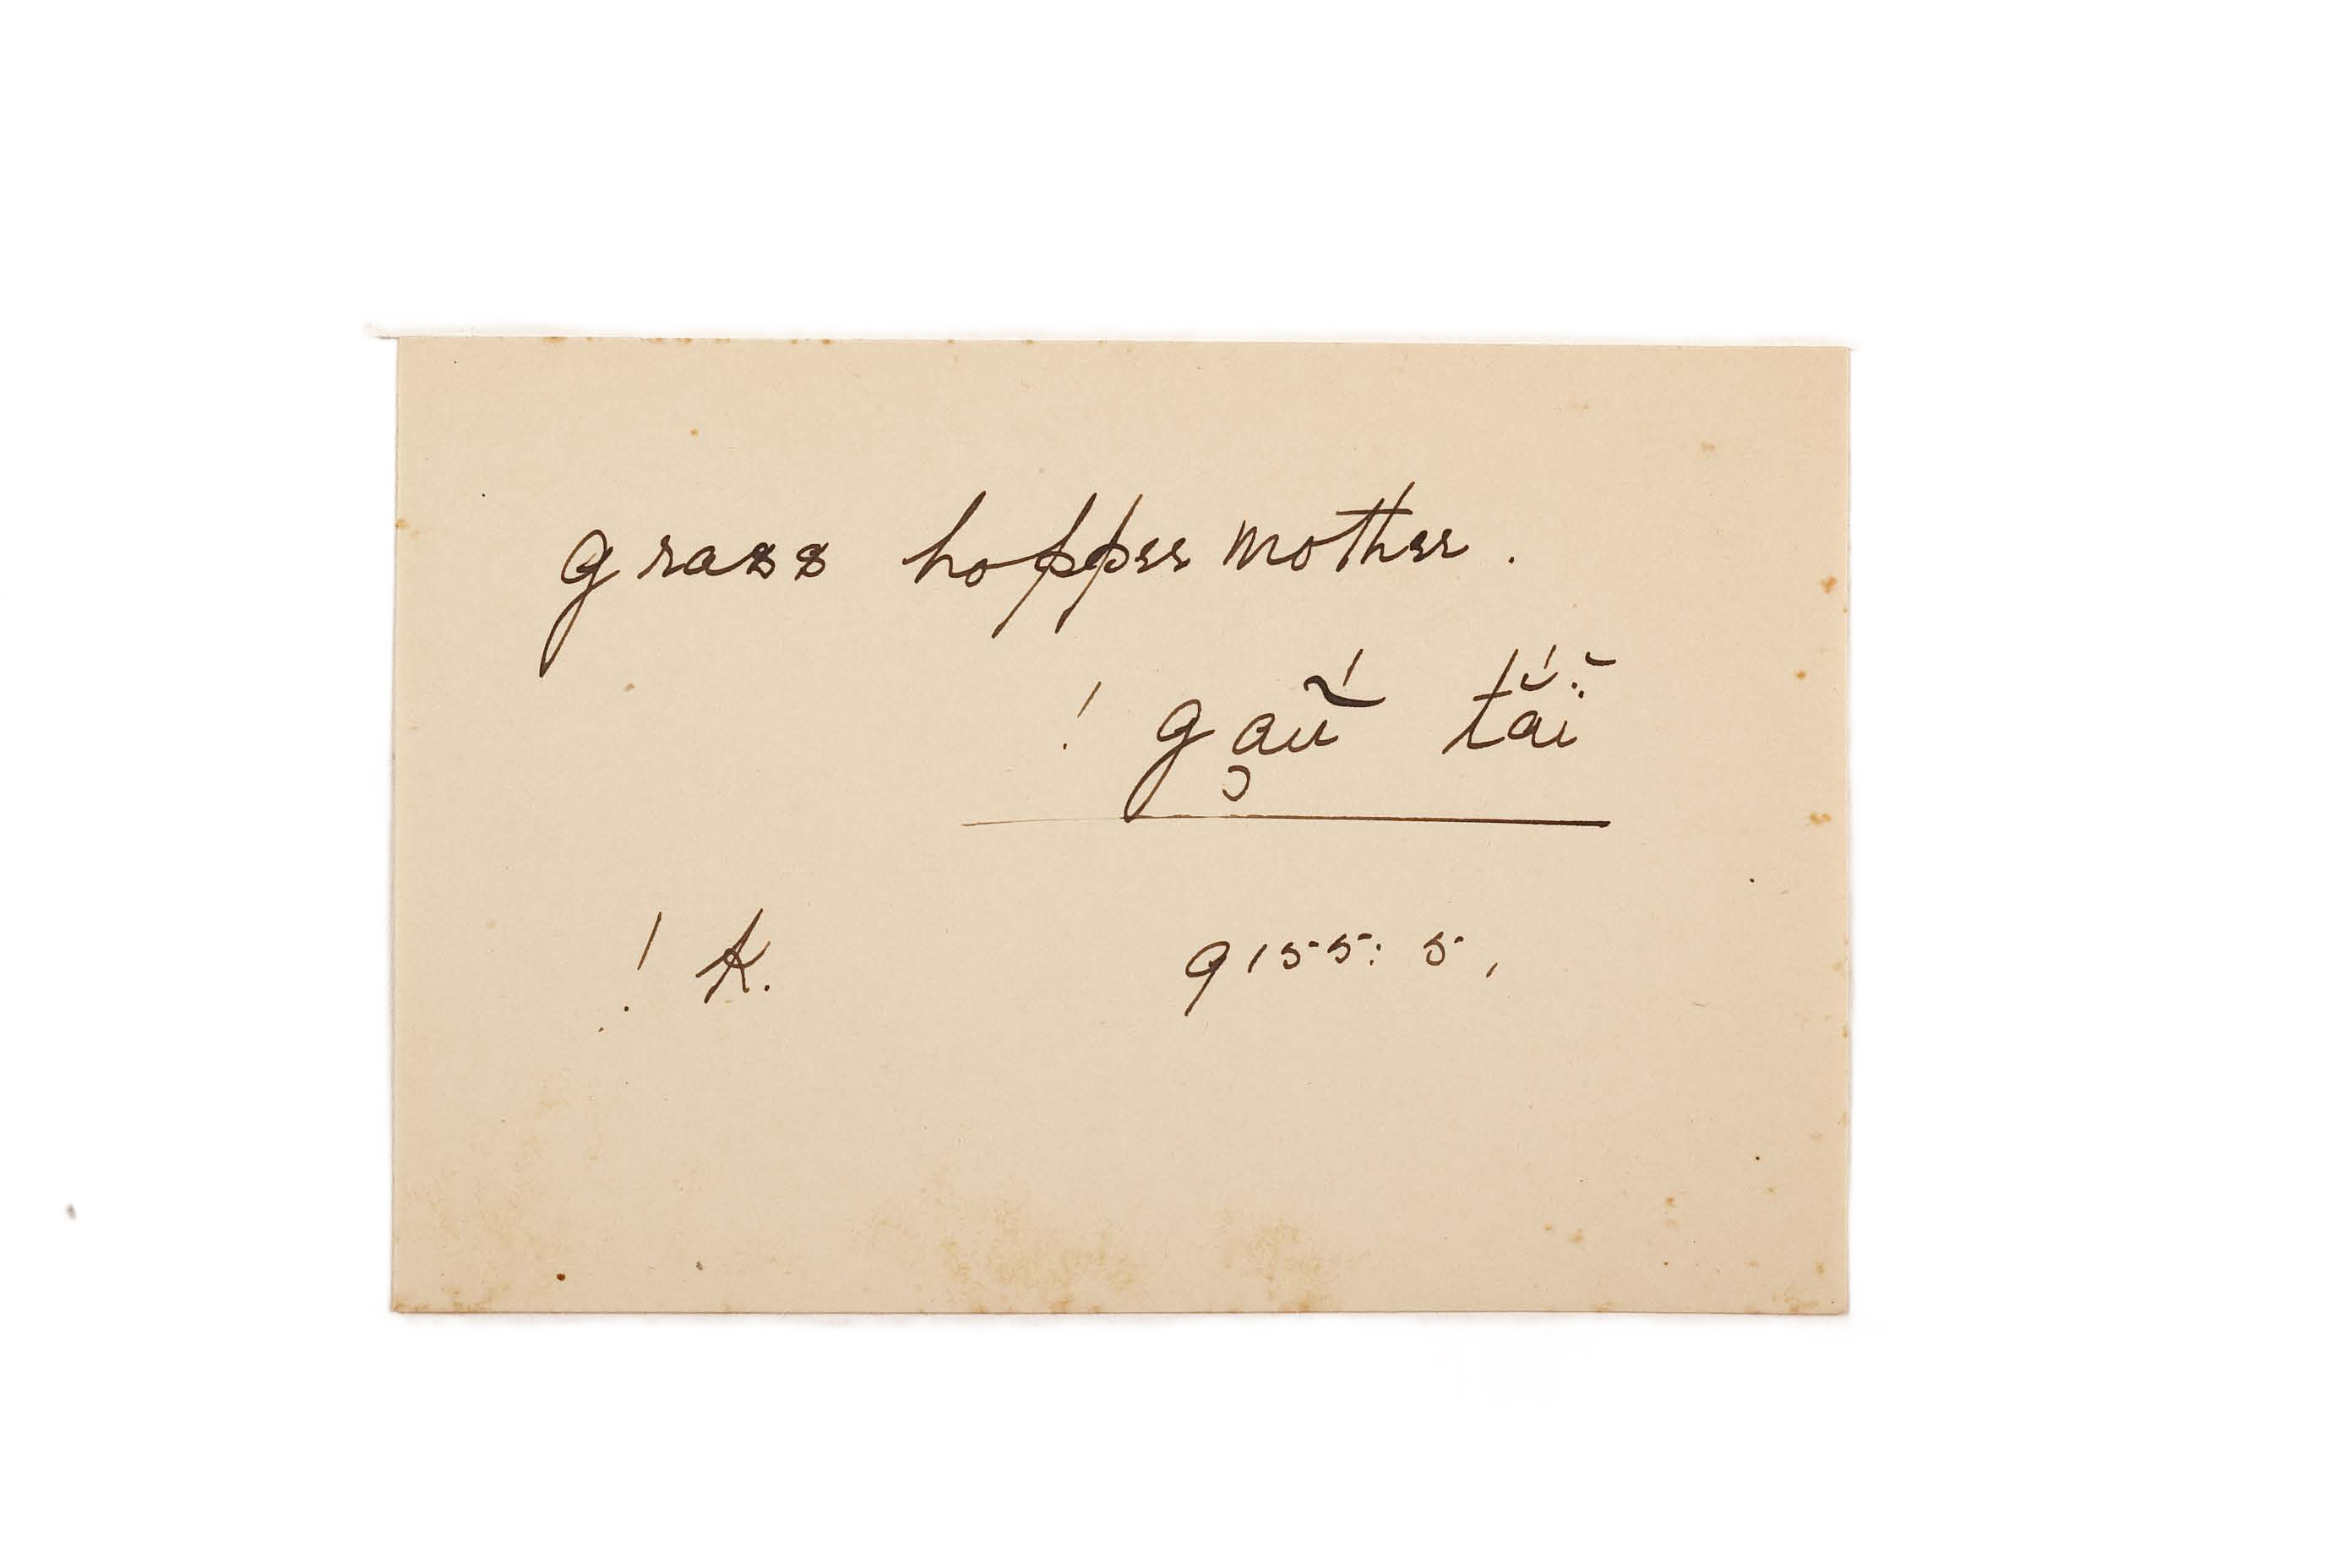 grass hopper mother.
! ga̧ṹ tắĭ̈
! k. 9155: 5,